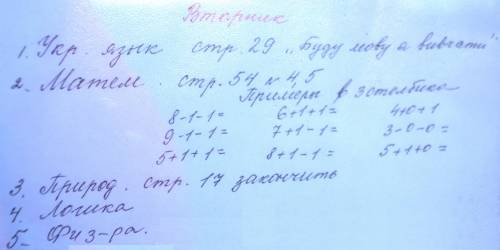 Вторник
1. Укр. язык стр. 29 „Буду мову а вивчати".
2. Матем. стр. 54 № 4,5
Примеры в 3 столбика
8-1-1= 6+1+1= 4+0+1
9-1-1= 7+1-1= 3-0-0=
5+1+1= 8+1-1= 5+1+0=
3. Природ. стр. 17 закончить
4. Логика
5- Физ-ра.